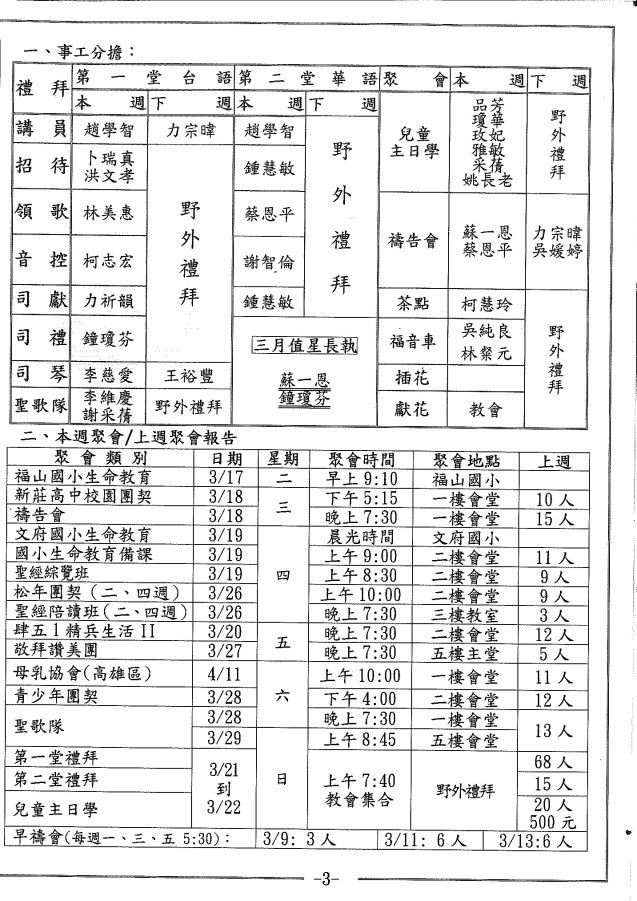 一、事工分擔：
禮拜 第一堂台語 第二堂華語 聚會 本週 下週
本週 下週 本週 下週
講員 趙學智 力宗暐 趙學智 野外禮拜
招待 卜瑞真 洪文孝 野外禮拜 鍾慧敏
領歌 林美惠 蔡恩平
音控 柯志宏 謝智倫
司獻 力祈韻 鍾慧敏
司禮 鐘瓊芬
司琴 李慈愛 王裕豐
聖歌隊 李維慶 謝采蒨 野外禮拜
三月值星長執
蘇一恩
鐘瓊芬
兒童主日學 品芳 瓊華 玫妃 雅敏 采蒨 姚長老 野外禮拜
禱告會 蘇一恩 蔡恩平 力宗暐 吳媛婷
茶點 柯慧玲 野外禮拜
福音車 吳純良 林粲元
插花
獻花 教會
二、本週聚會/上週聚會報告
聚會類別 日期 星期 聚會時間 聚會地點 上週
福山國小生命教育 3/17 二 早上 9:10 福山國小
新莊高中校園團契 3/18 三 下午 5:15 一樓會堂 10 人
禱告會 3/18 晚上 7:30 一樓會堂 15 人
文府國小生命教育 3/19 四 晨光時間 文府國小
國小生命教育備課 3/19 上午 9:00 二樓會堂 11 人
聖經綜覽班 3/19 上午 8:30 二樓會堂 9 人
松年團契（二、四週） 3/26 上午 10:00 二樓會堂 9 人
聖經陪讀班(二、四週) 3/26 晚上 7:30 三樓教室 3 人
肆五1精兵生活 II 3/20 五 晚上 7:30 二樓會堂 12 人
敬拜讚美團 3/27 晚上 7:30 五樓主堂 5 人
母乳協會(高雄區) 4/11 六 上午 10:00 一樓會堂 11 人
青少年團契 3/28 下午 4:00 二樓會堂 12 人
聖歌隊 3/28 晚上 7:30 一樓會堂 13 人
3/29 日 上午 8:45 五樓會堂
第一堂禮拜 3/21到3/22 上午 7:40 教會集合 野外禮拜 68 人
第二堂禮拜 15 人
兒童主日學 20 人
500 元
早禱會(每週一、三、五 5:30)： 3/9: 3 人 3/11: 6 人 3/13:6 人
-3-